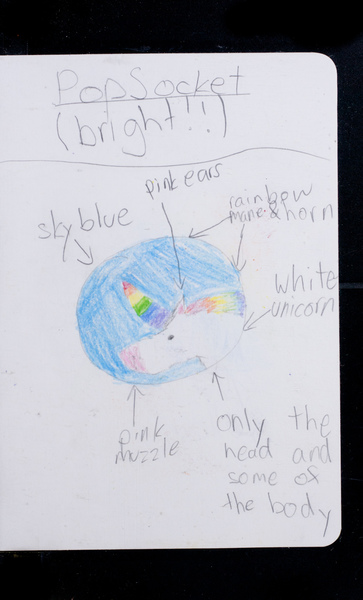 PopSocket
(bright!!)
pink ears
rainbow
mane & horn
sky blue
white
unicorn
pink
muzzle
only the
head and
some of
the body